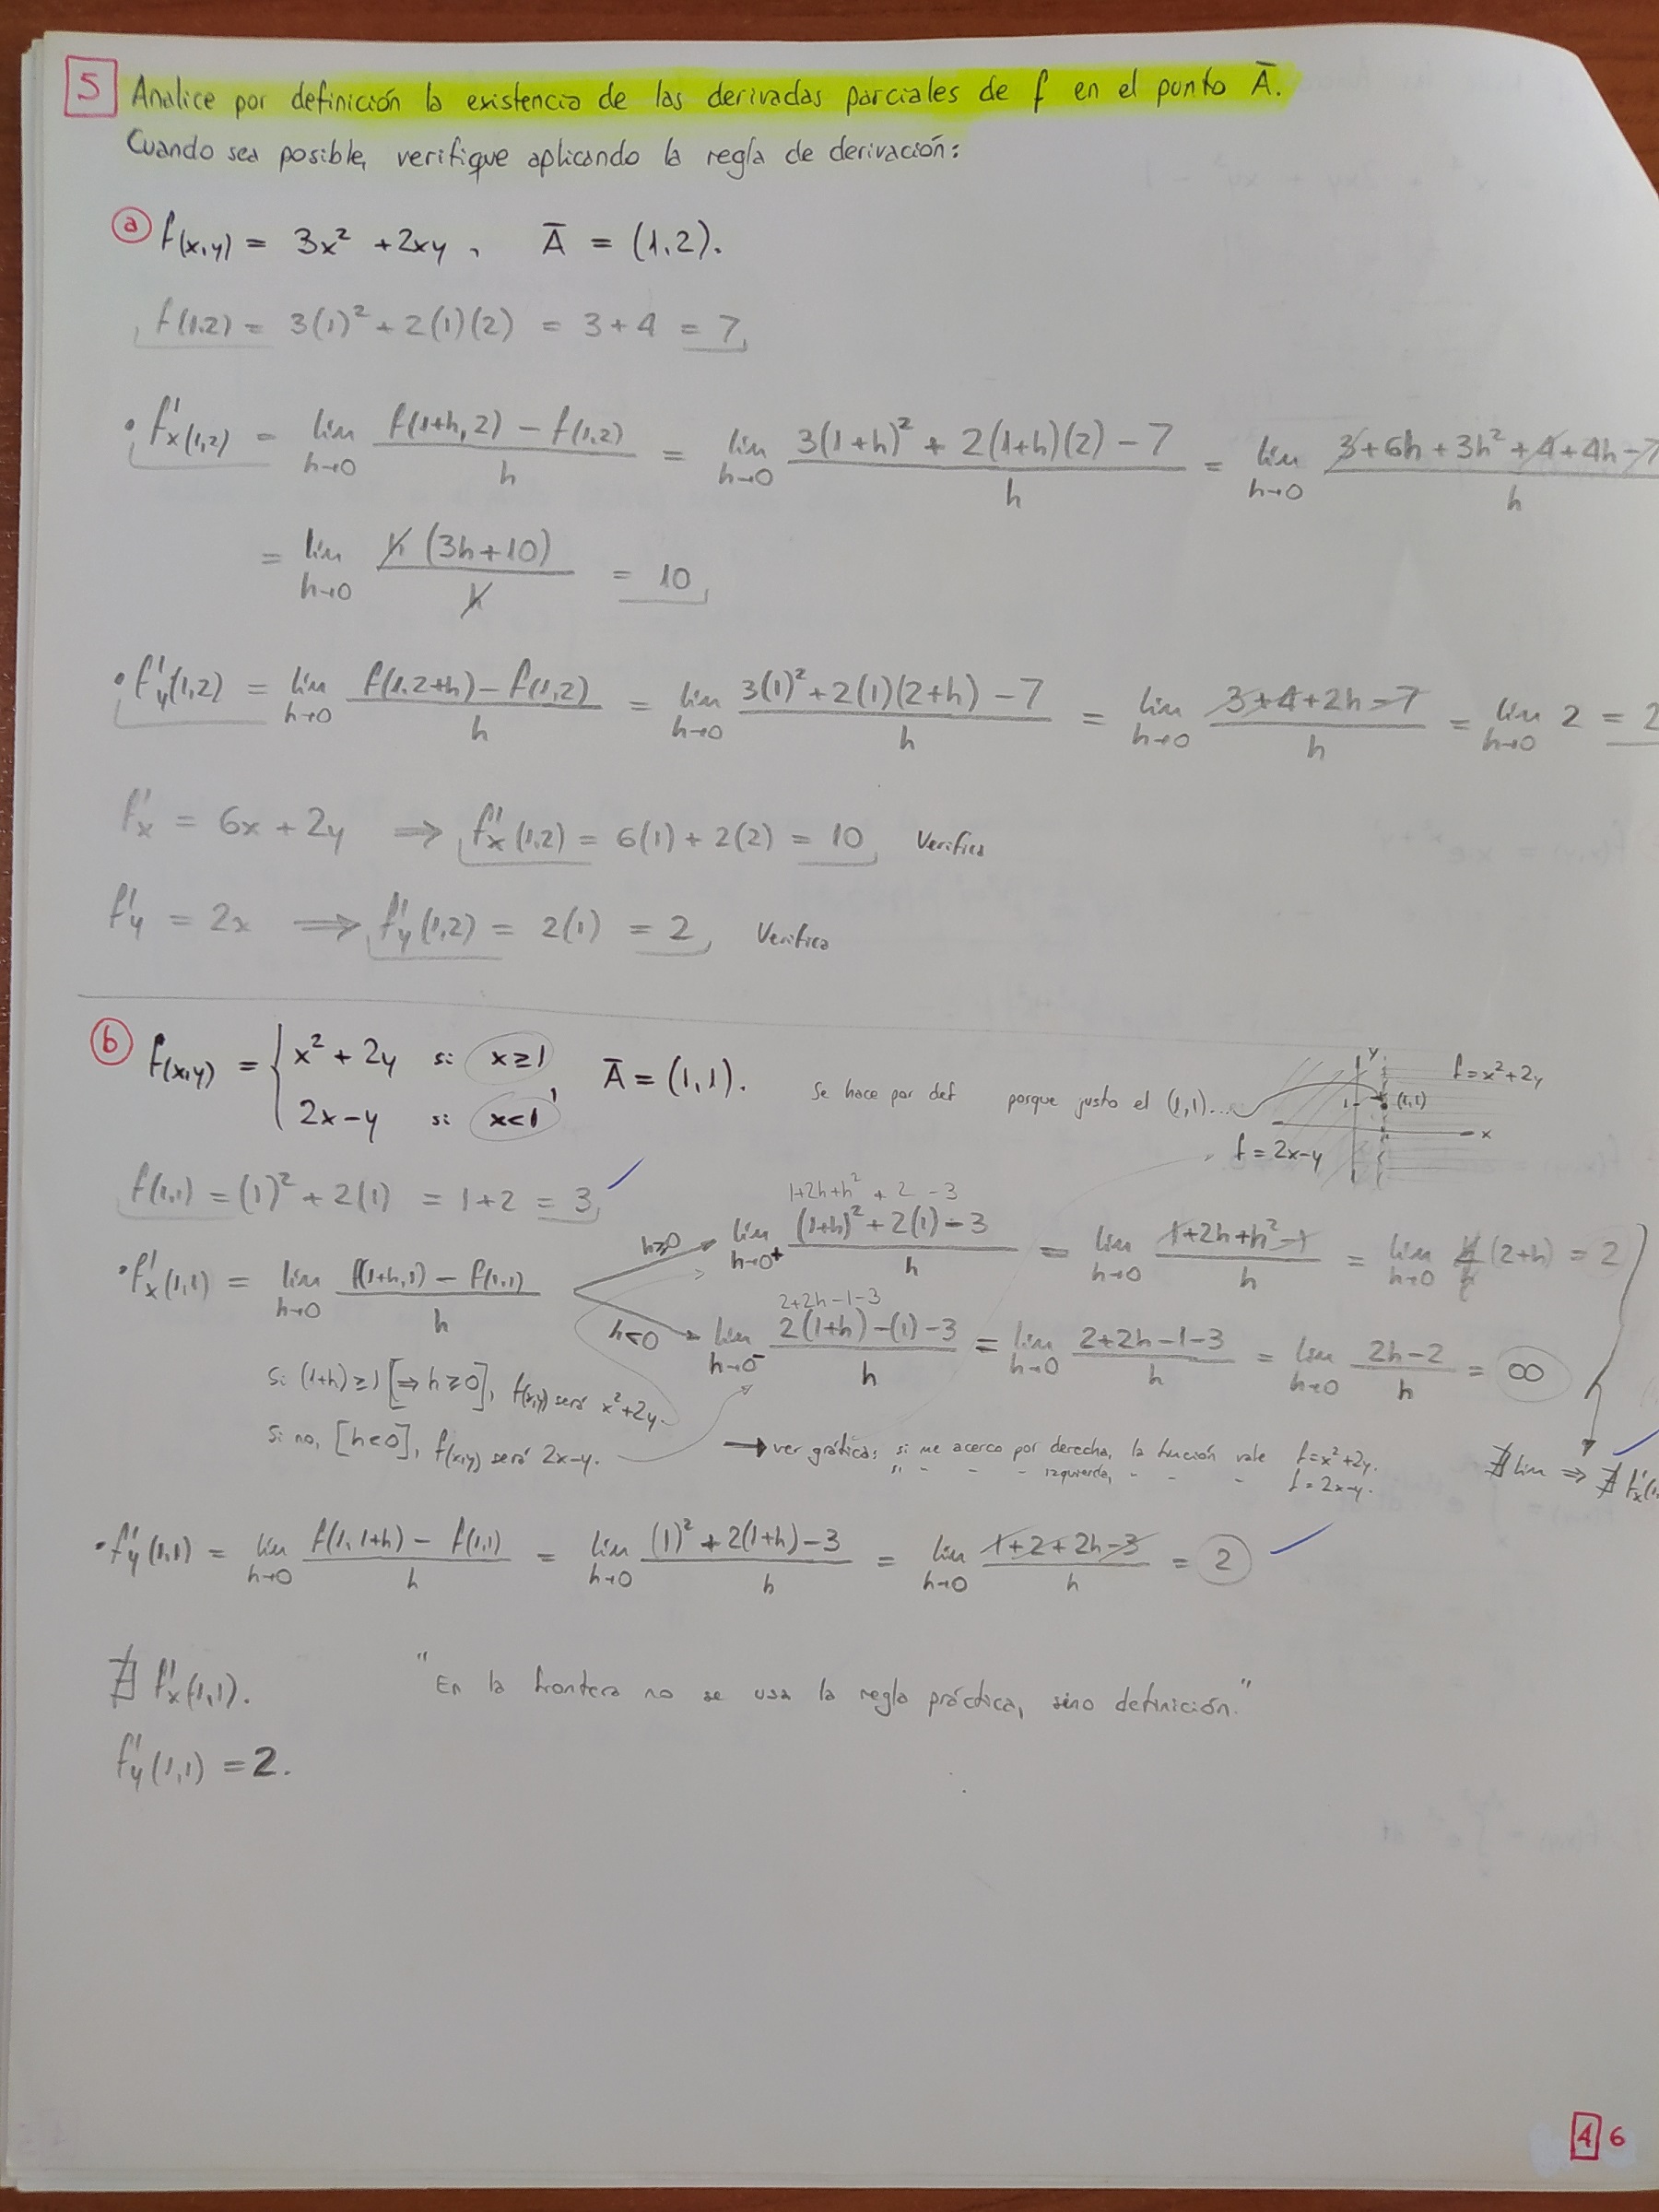 5 Analice por definición la existencia de las derivadas parciales de f en el punto Ā.
Cuando sea posible, verifique aplicando la regla de derivación:
a f(x,y) = 3x² + 2xy , Ā = (1,2).
f(1,2) = 3(1)² + 2(1)(2) = 3+4 = 7
• f'x(1,2) = lim h→0 (f(1+h,2) − f(1,2))/h = lim h→0 (3(1+h)² + 2(1+h)(2) − 7)/h = lim h→0 (3+6h+3h²+4+4h−7)/h
= lim h→0 h(3h+10)/h = 10
• f'y(1,2) = lim h→0 (f(1,2+h) − f(1,2))/h = lim h→0 (3(1)² + 2(1)(2+h) − 7)/h = lim h→0 (3+4+2h−7)/h = lim h→0 2 = 2
f'x = 6x + 2y ⟹ f'x(1,2) = 6(1) + 2(2) = 10 Verifica
f'y = 2x ⟹ f'y(1,2) = 2(1) = 2 Verifica
b f(x,y) = { x² + 2y si x≥1
2x−y si x<1 , Ā = (1,1).
Se hace por def porque justo el (1,1)...
y
f = x²+2y
1
(1,1)
x
f = 2x−y
f(1,1) = (1)² + 2(1) = 1+2 = 3 ✓
1+2h+h² + 2 − 3
h≥0 lim h→0⁺ ((1+h)² + 2(1) − 3)/h = lim h→0 (1+2h+h²−1)/h = lim h→0 h/h (2+h) = 2
• f'x(1,1) = lim h→0 (f(1+h,1) − f(1,1))/h
2+2h−1−3
h<0 lim h→0⁻ (2(1+h) − (1) − 3)/h = lim h→0 (2+2h−1−3)/h = lim h→0 (2h−2)/h = ∞
Si (1+h)≥1 [⇒ h≥0], f(x,y) será x²+2y.
Si no, [h<0], f(x,y) será 2x−y.
→ ver gráfica: si me acerco por derecha, la función vale f=x²+2y.
si - - - izquierda, - - - f=2x−y.
∄ lim ⇒ ∄ f'x(1,
✓
• f'y(1,1) = lim h→0 (f(1,1+h) − f(1,1))/h = lim h→0 ((1)² + 2(1+h) − 3)/h = lim h→0 (1+2+2h−3)/h = 2 ✓
∄ f'x(1,1).
"En la frontera no se usa la regla práctica, sino definición."
f'y(1,1) = 2.
4 6